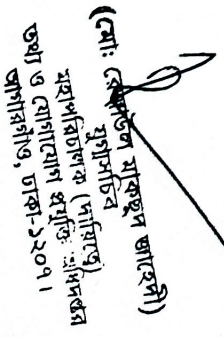 (মো: মাকছুদ জাহেদী)
যুগ্মসচিব
মহাপরিচালক (দায়িত্ব)
তথ্য ও যোগাযোগ প্রযুক্তি অধিদপ্তর
আগারগাঁও, ঢাকা-১২০৭।